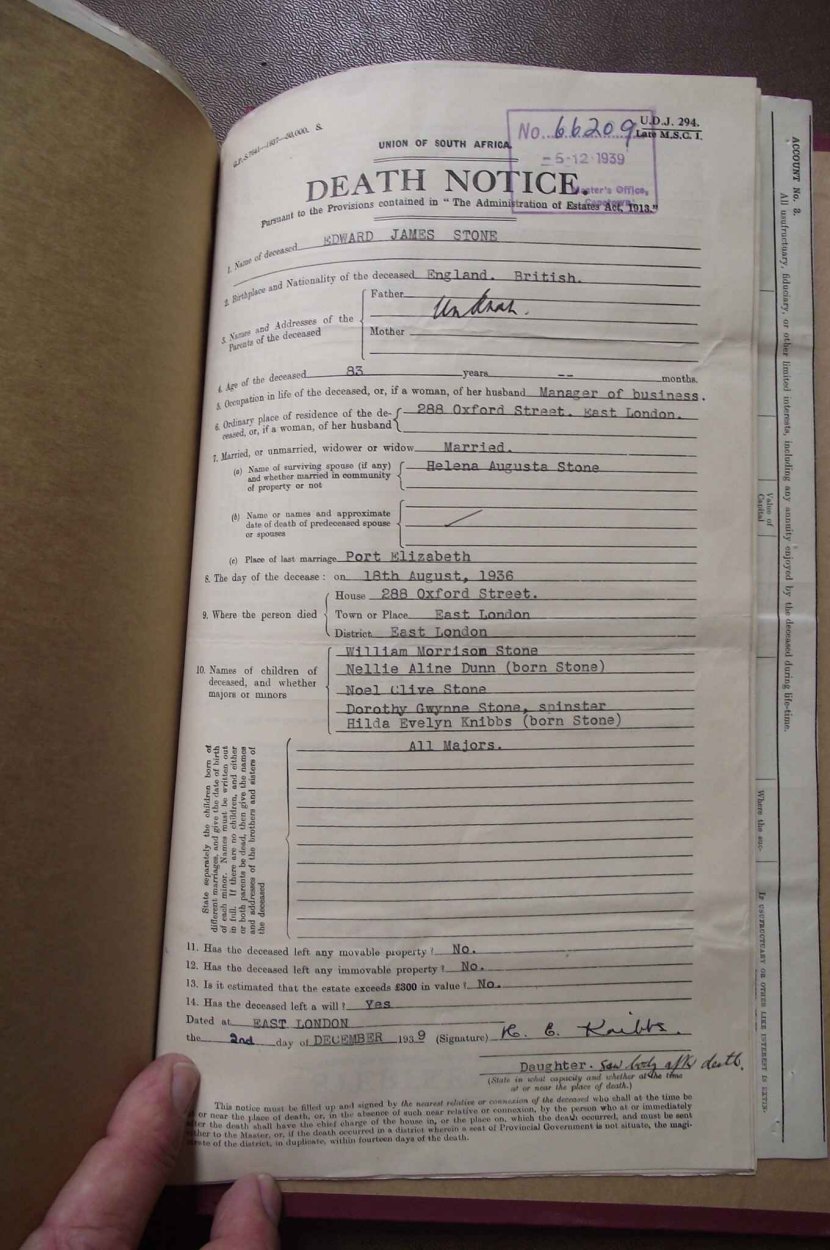 G.P.-S.7641—1937—50,000. S.
U.D.J. 294.
Late M.S.C. I.
No. 66209
-5-12-1939
Master's Office,
Capetown.
UNION OF SOUTH AFRICA.
DEATH NOTICE.
Pursuant to the Provisions contained in "The Administration of Estates Act, 1913."
1. Name of deceased EDWARD JAMES STONE
2. Birthplace and Nationality of the deceased England. British.
3. Names and Addresses of the Parents of the deceased
Father
Unknan.
Mother
4. Age of the deceased 83 years -- months.
5. Occupation in life of the deceased, or, if a woman, of her husband Manager of business.
6. Ordinary place of residence of the de-
ceased, or, if a woman, of her husband
288 Oxford Street. East London.
7. Married, or unmarried, widower or widow Married.
(a) Name of surviving spouse (if any)
and whether married in community
of property or not
Helena Augusta Stone
(b) Name or names and approximate
date of death of predeceased spouse
or spouses
(c) Place of last marriage Port Elizabeth
8. The day of the decease: on 18th August, 1936
9. Where the person died
House 288 Oxford Street.
Town or Place East London
District East London
10. Names of children of
deceased, and whether
majors or minors
William Morrison Stone
Nellie Aline Dunn (born Stone)
Noel Clive Stone
Dorothy Gwynne Stone, spinster
Hilda Evelyn Knibbs (born Stone)
All Majors.
State separately the children born of
different marriages, and give the date of birth
of each minor. Names must be written out
in full. If there are no children, and either
or both parents be dead, then give the names
and addresses of the brothers and sisters of
the deceased
11. Has the deceased left any movable property? No.
12. Has the deceased left any immovable property? No.
13. Is it estimated that the estate exceeds £300 in value? No.
14. Has the deceased left a will? Yes
Dated at EAST LONDON
the 2nd day of DECEMBER 1939 (Signature) H. E. Knibbs.
Daughter. Saw body after death.
(State in what capacity and whether at the time
at or near the place of death.)
This notice must be filled up and signed by the nearest relative or connexion of the deceased who shall at the time be
at or near the place of death, or, in the absence of such near relative or connexion, by the person who at or immediately
after the death shall have the chief charge of the house in, or the place on, which the death occurred, and must be sent
either to the Master, or, if the death occurred in a district wherein a seat of Provincial Government is not situate, the magi-
strate of the district, in duplicate, within fourteen days of the death.
ACCOUNT No. 2.
All usufructuary, fiduciary, or other limited interests, including any annuity enjoyed by the deceased during life-time.
Value of
Capital
Where the suc-
IF USUFRUCTUARY OR OTHER LIKE INTEREST IS EXTIN-